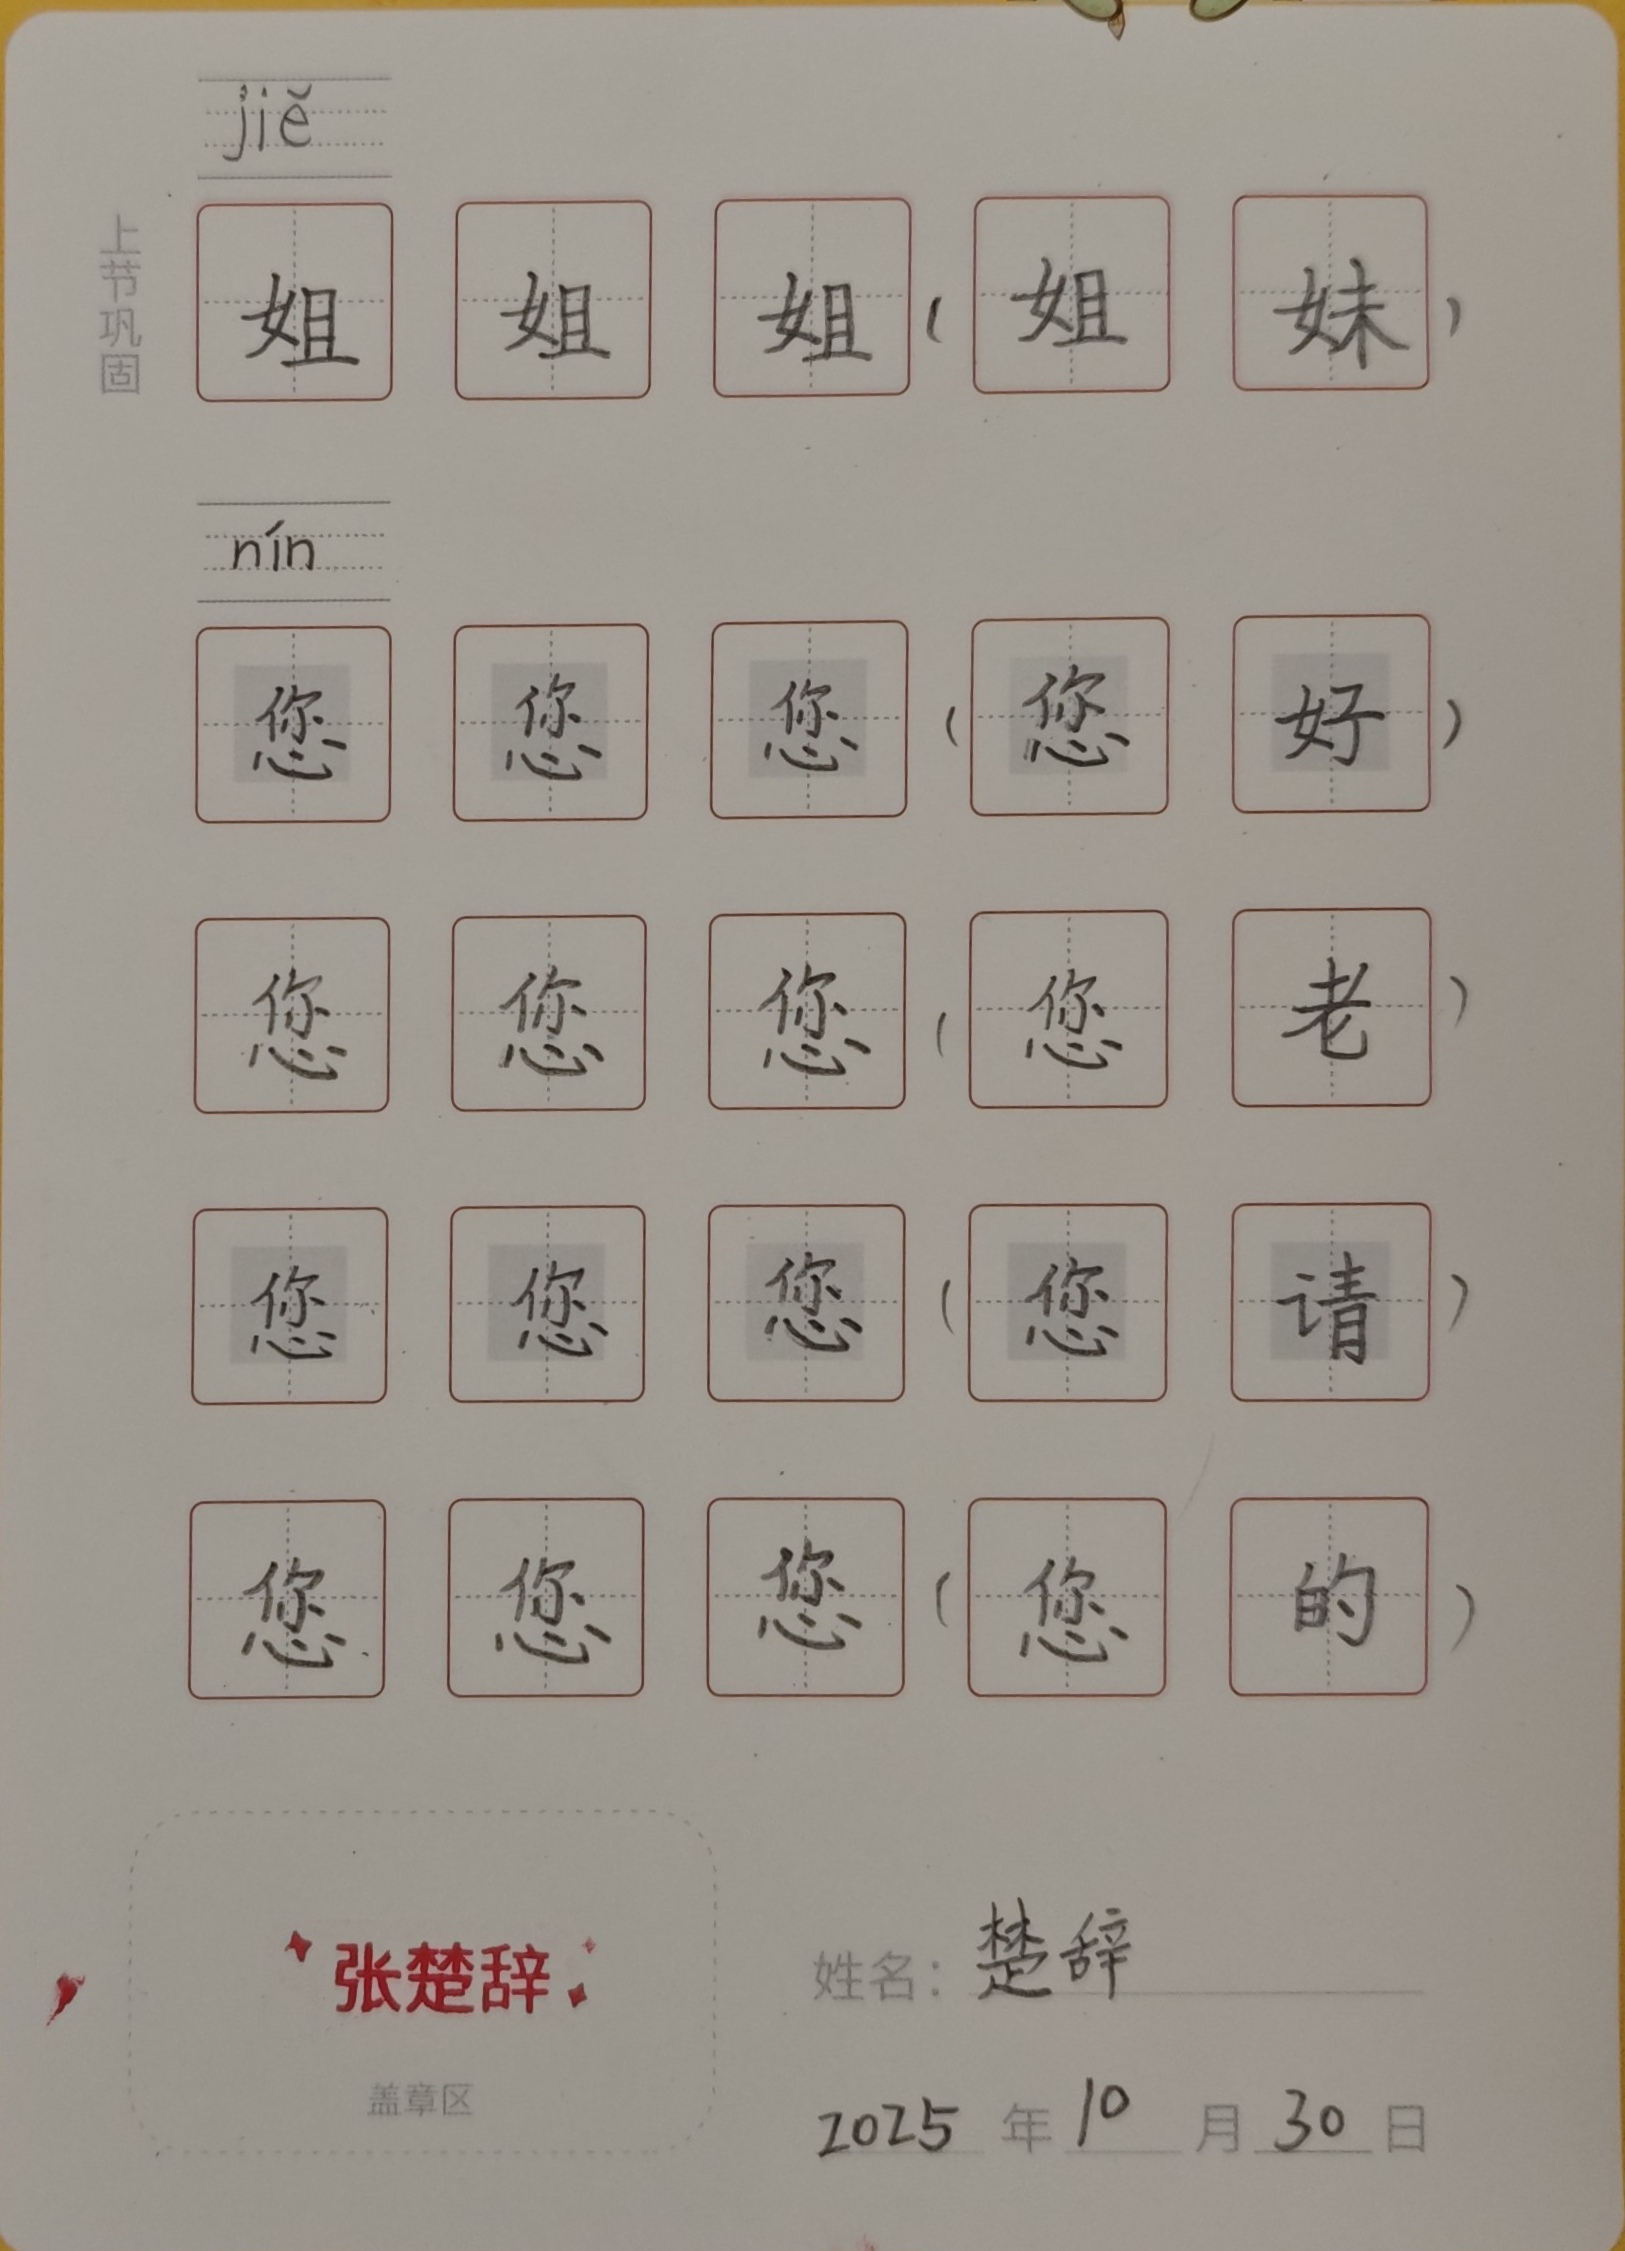 jiě
上节巩固
姐 姐 姐 ( 姐 妹 )
nín
您 您 您 ( 您 好 )
您 您 您 ( 您 老 )
您 您 您 ( 您 请 )
您 您 您 ( 您 的 )
张楚辞
盖章区
姓名: 楚辞
2025 年 10 月 30 日